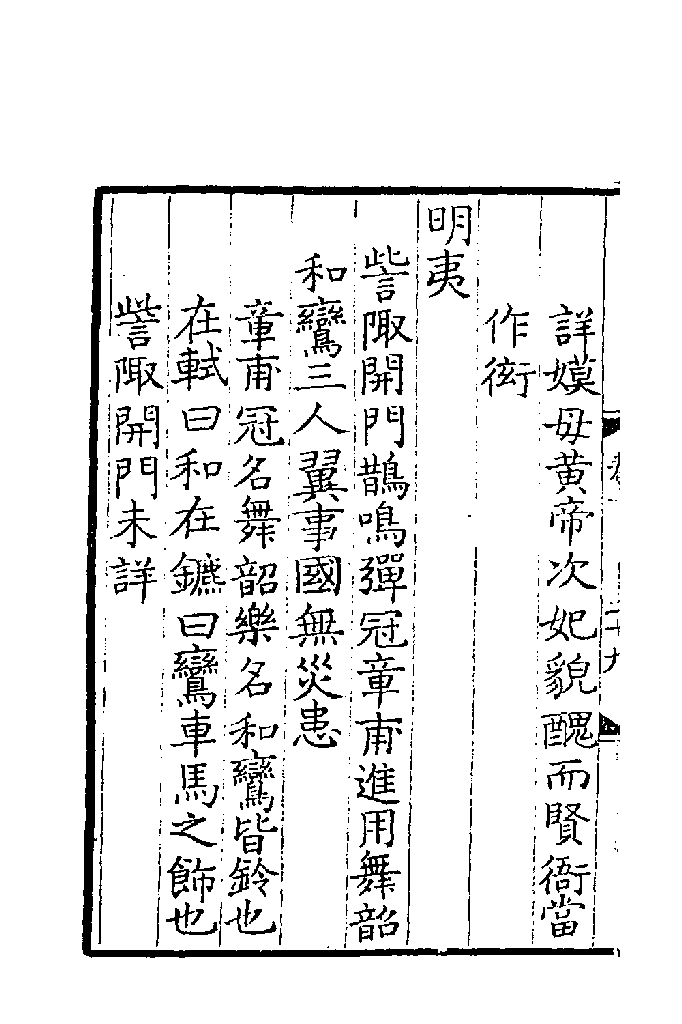 詳嫫母黄帝次妃貌醜而賢衙當
作衒
明夷
訾陬開門鵲鳴彈冠章甫進用舞韶
和鸞三人翼事國無災患
章甫冠名舞韶樂名和鸞皆鈴也
在軾曰和在鑣曰鸞車馬之飾也
訾陬開門未詳